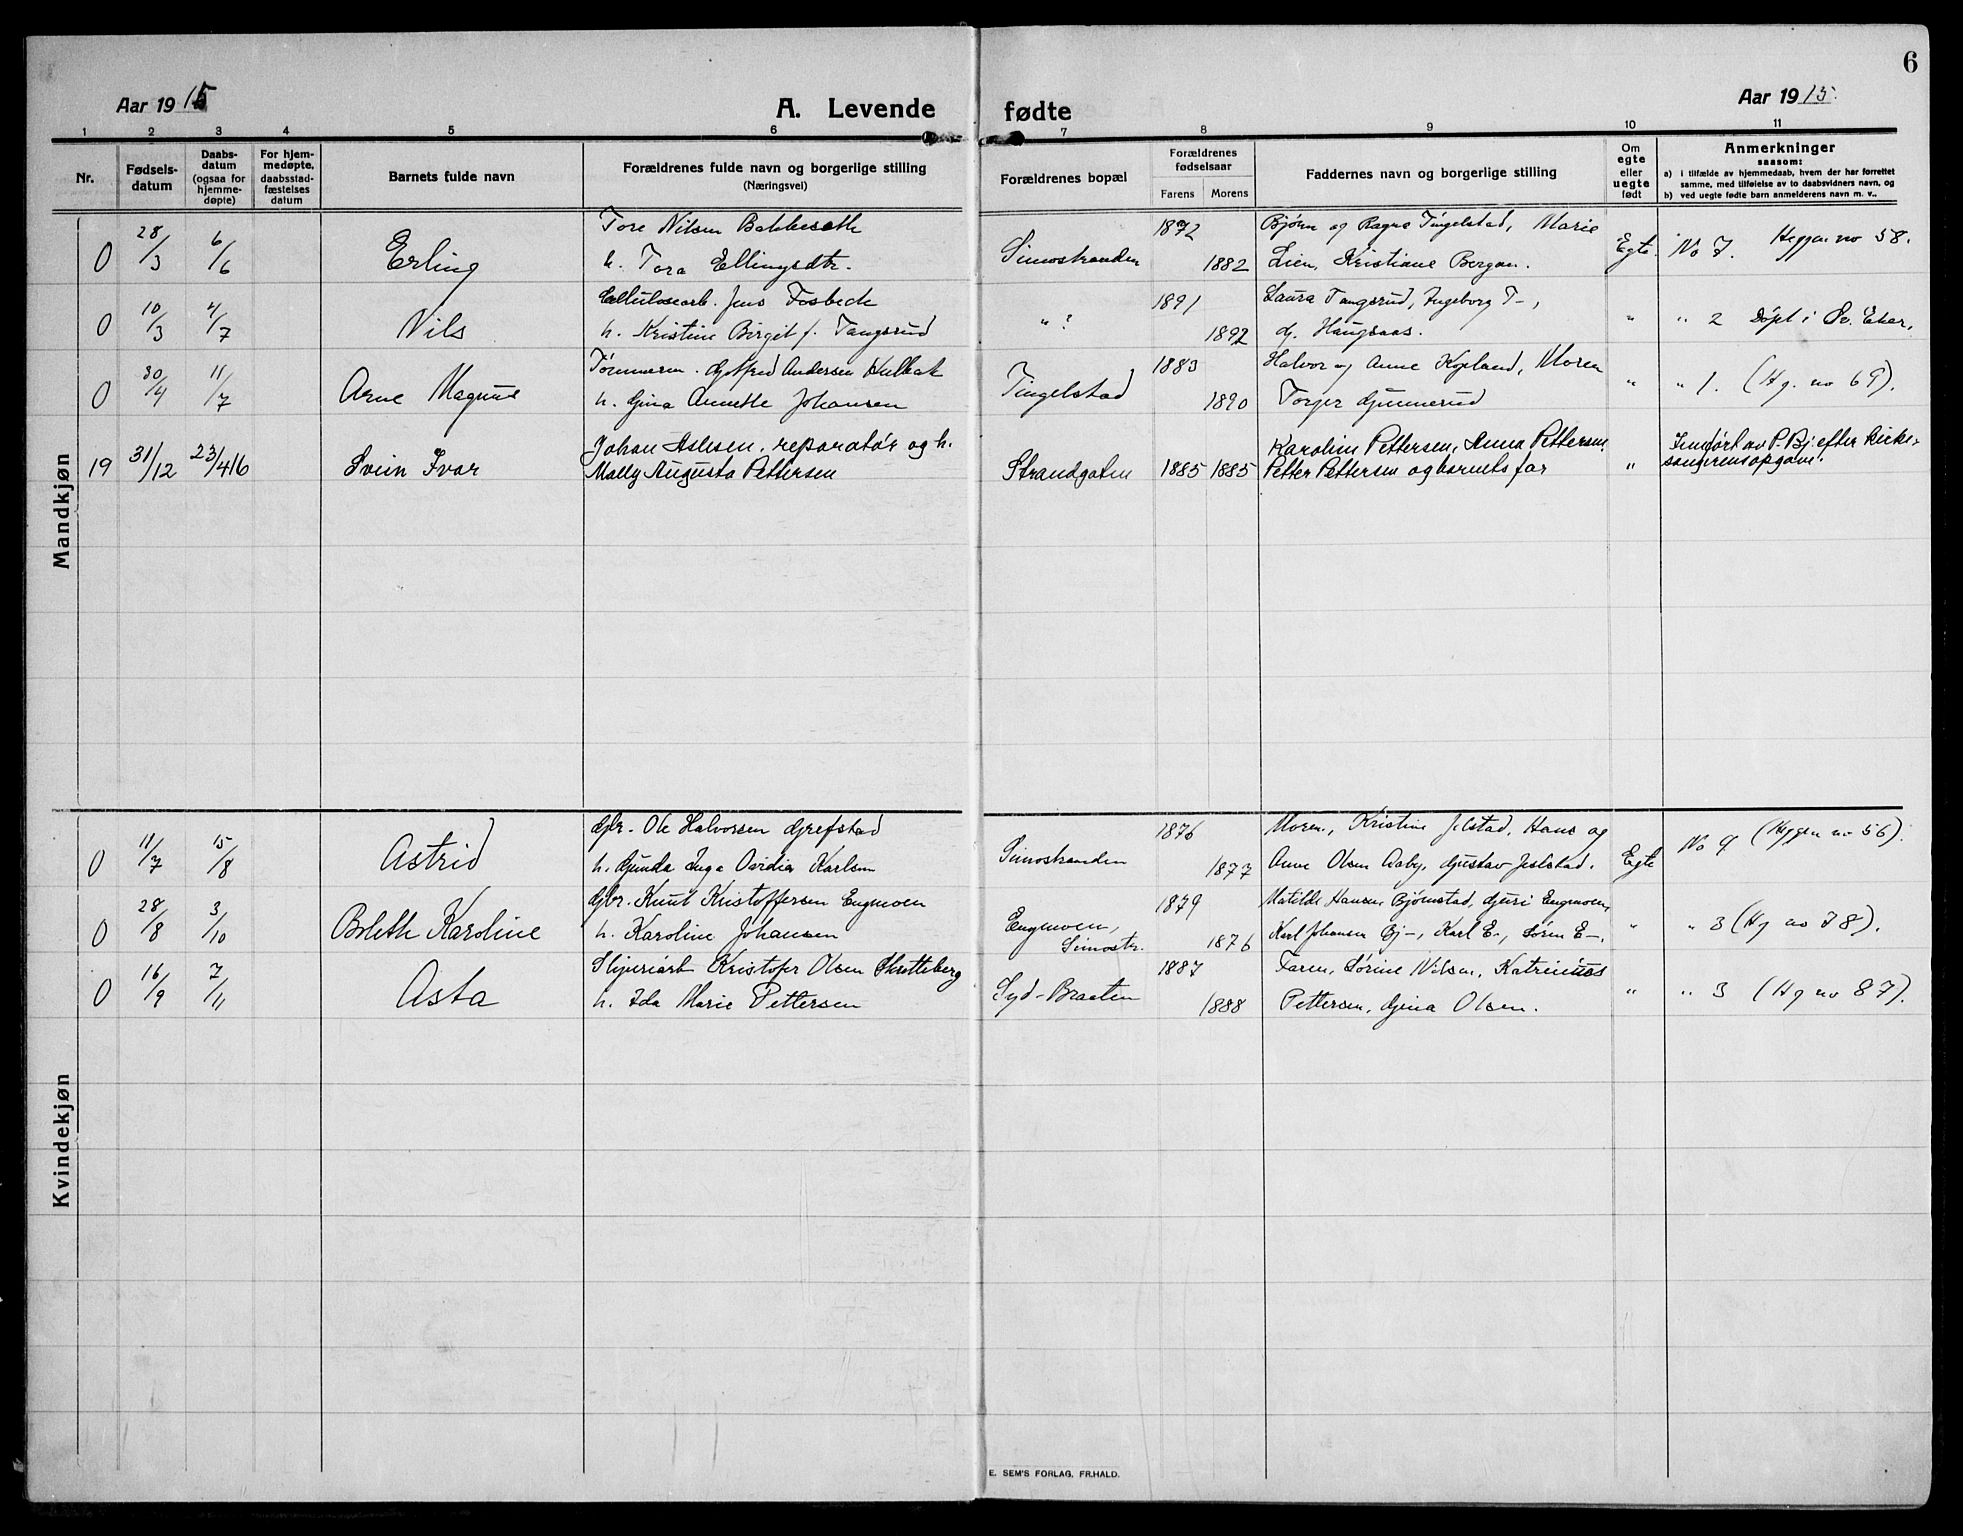 6
Aar 1915
A. Levende fødte
Aar 1915.
1 2 3 4 5 6 7 8 9 10 11
Nr.
Fødsels-
datum
Daabs-
datum
(ogsaa for
hjemme-
døpte)
For hjem-
medøpte,
daabsstad-
fæstelses
datum
Barnets fulde navn
Forældrenes fulde navn og borgerlige stilling
(Næringsvei)
Forældrenes bopæl
Forældrenes
fødselsaar
Farens Morens
Faddernes navn og borgerlige stilling
Om
egte
eller
uegte
født
Anmerkninger
saasom:
a) i tilfælde av hjemmedaab, hvem der har forrettet
samme, med tilføielse av to daabsvidners navn, og
b) ved uegte fødte barn anmelderens navn m. v..
Mandkjøn
0 28/3 6/6 Erling
Tore Nilsen Bakkeseth
h. Tora Ellingsdtr.
Simostranden 1872 1882
Bjørn og Ragna Tingelstad, Marie
Lien, Kristiane Bergan.
Egte. No 7. Heggen no 58.
0 10/3 4/7 Nils
Cellulosearb. Jens Fosbæck
h. Kristine Birgit f. Tangsrud
" ? 1891 1892
Laura Tangsrud, Ingeborg T-,
G. Haugsaas.
" " 2 Døpt i Øv. Eker.
0 30/4 11/7 Arne Magnus
Tømmerm. Gotfred Andersen Hulbak
h. Gina Annette Johansen
Tingelstad 1883 1890
Halvor og Anne Kopland, Moren
Torger Gunnerud
" " 1. (Hg. no 69).
19 31/12 23/4 16 Svein Ivar
Johan Aslesen, reparatør og h.
Mally Augusta Pettersen
Strandgaten 1885 1885
Karoline Pettersen, Anna Pettersen,
Petter Pettersen og barnets far
" Indført av P. Bj. efter kirke-
sangerens opgave.
Kvindekjøn
0 11/7 15/8 Astrid
Gbr. Ole Halvorsen Grefstad
h. Gunda Inga Ovidia Karlsen
Simostranden 1876 1877
Moren, Kristine Jelstad, Hans og
Anne Olsen Aaby, Gustav Jelstad.
Egte No 9 (Heggen no 56).
0 28/8 3/10 Boleth Karoline
Gbr. Knut Kristoffersen Engmoen
h. Karoline Johansen
Engmoen,
Simostr. 1879 1876
Matilde Hansen Bjørnstad, Guri Engmoen,
Karl Johansen Bj-, Karl E-, Søren E-.
" " 3 (Hg no 78).
0 16/9 7/11 Asta
Sliperiarb Kristofer Olsen Skotteberg
h. Ida Marie Pettersen
Syd-Braaten 1887 1888
Faren, Sørine Nilsen, Katrinus
Pettersen, Gina Olsen.
" " 3 (Hg no 87).
E. SEM'S FORLAG, FR.HALD.